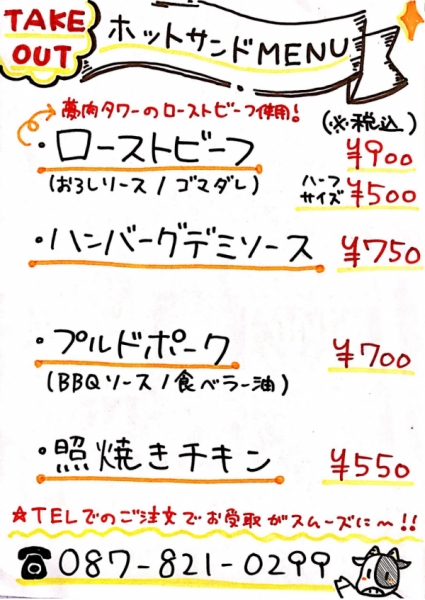 TAKE OUT
ホットサンドMENU
夢肉タワーのローストビーフ使用!
(※税込)
・ローストビーフ ¥900
(おろしソース / ゴマダレ) ハーフサイズ ¥500
・ハンバーグデミソース ¥750
・プルドポーク ¥700
(BBQソース / 食べラー油)
・照焼きチキン ¥550
☆TELでのご注文でお受取がスムーズに〜!!
☎087-821-0299